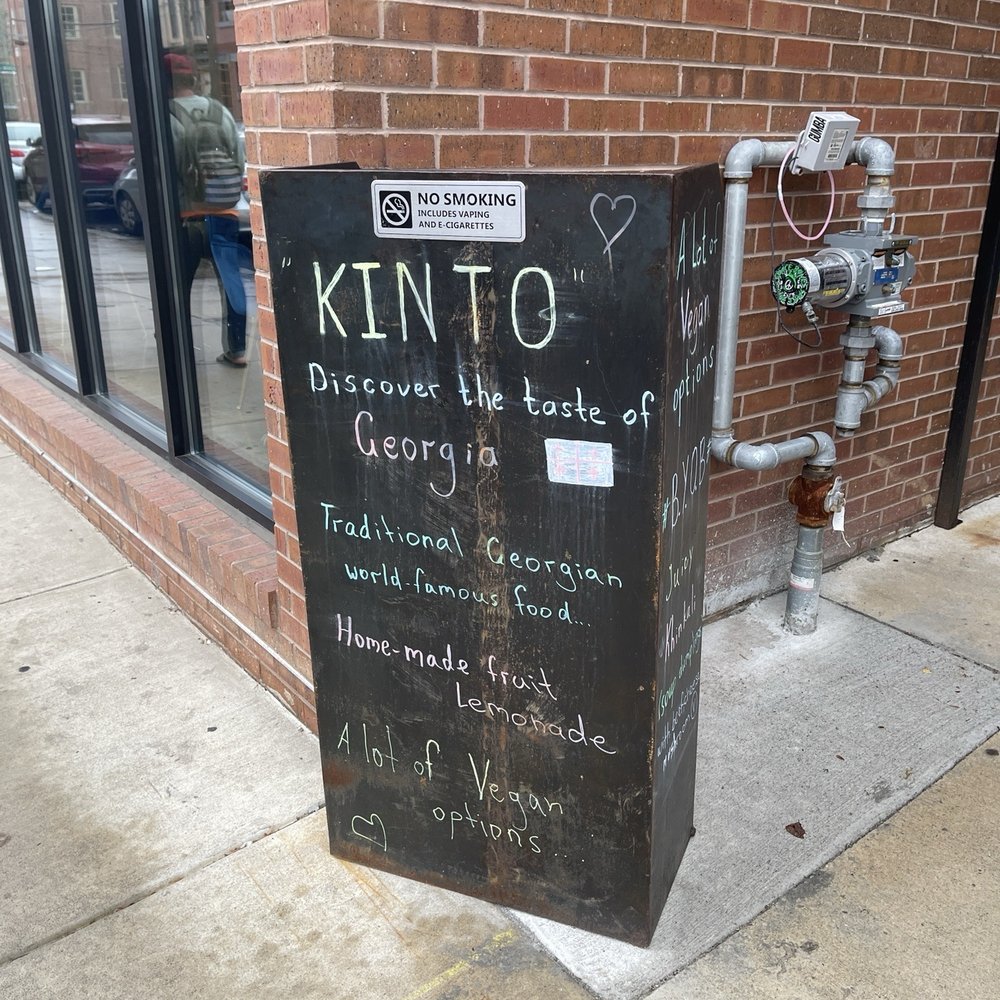 NO SMOKING
INCLUDES VAPING
AND E-CIGARETTES
"KINTO"
Discover the taste of
Georgia
Traditional Georgian
world-famous food...
Home-made fruit
Lemonade
A lot of Vegan
options....
A Lot of
Vegan
options
#B.Y.O.B
Juicy
Khinkali
(soup dumplings
GUMBA